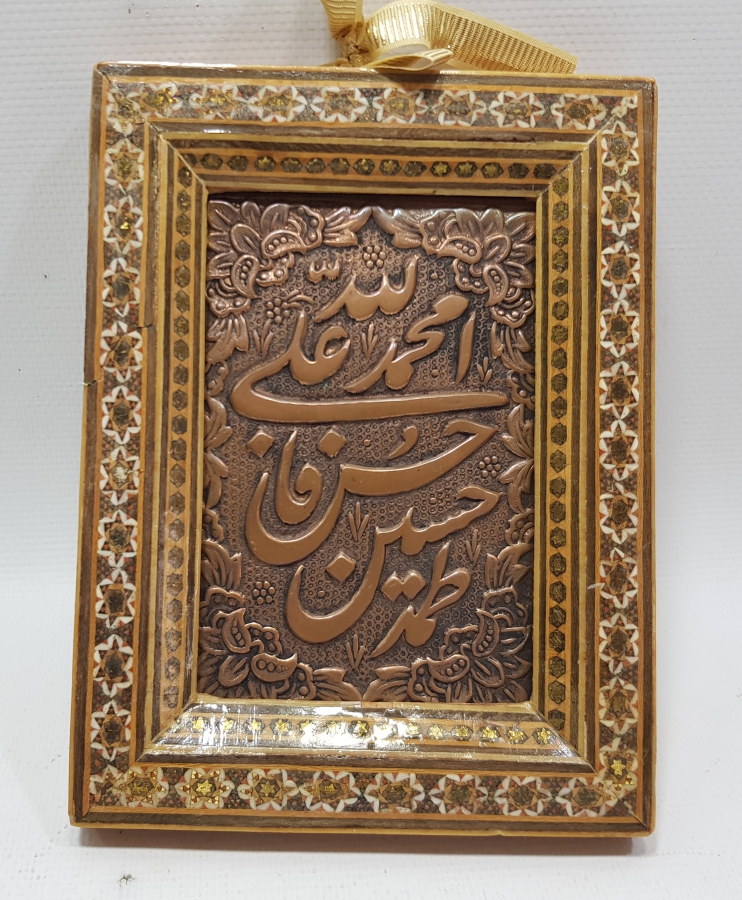 الله
محمد علی
حسن فا
حسین
طمه